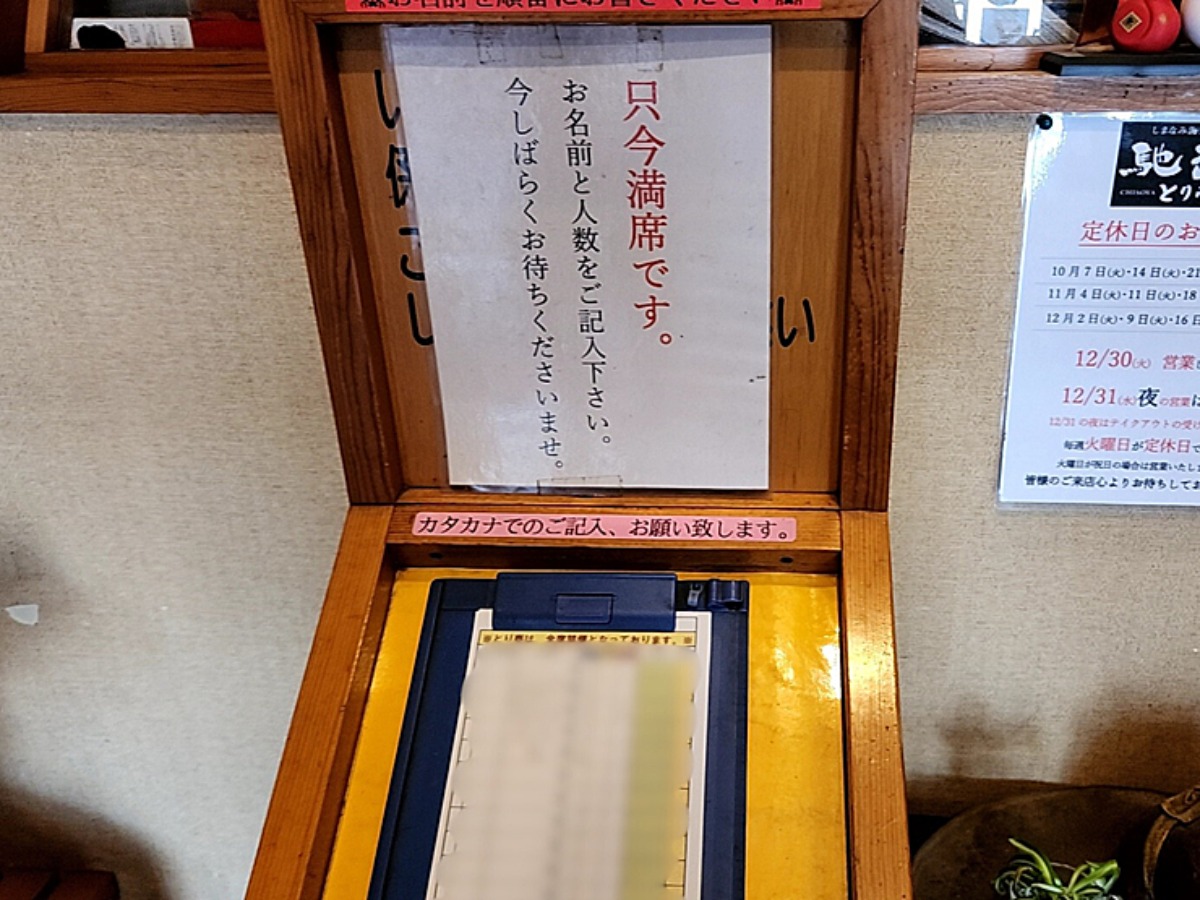 お名前を順番にお書きください
只今満席です。
お名前と人数をご記入下さい。
今しばらくお待ちくださいませ。
い
カタカナでのご記入、お願い致します。
※とり専は、全席禁煙となっております。※
しまなみ
馳
CHISOYA
とり
定休日のお
10月7日(火)・14日(火)・21
11月4日(火)・11日(火)・18
12月2日(火)・9日(火)・16日
12/30(火) 営業
12/31(水)夜の営業は
12/31の夜はテイクアウトの受け
毎週火曜日が定休日で
火曜日が祝日の場合は営業いたし
皆様のご来店心よりお待ちしてお